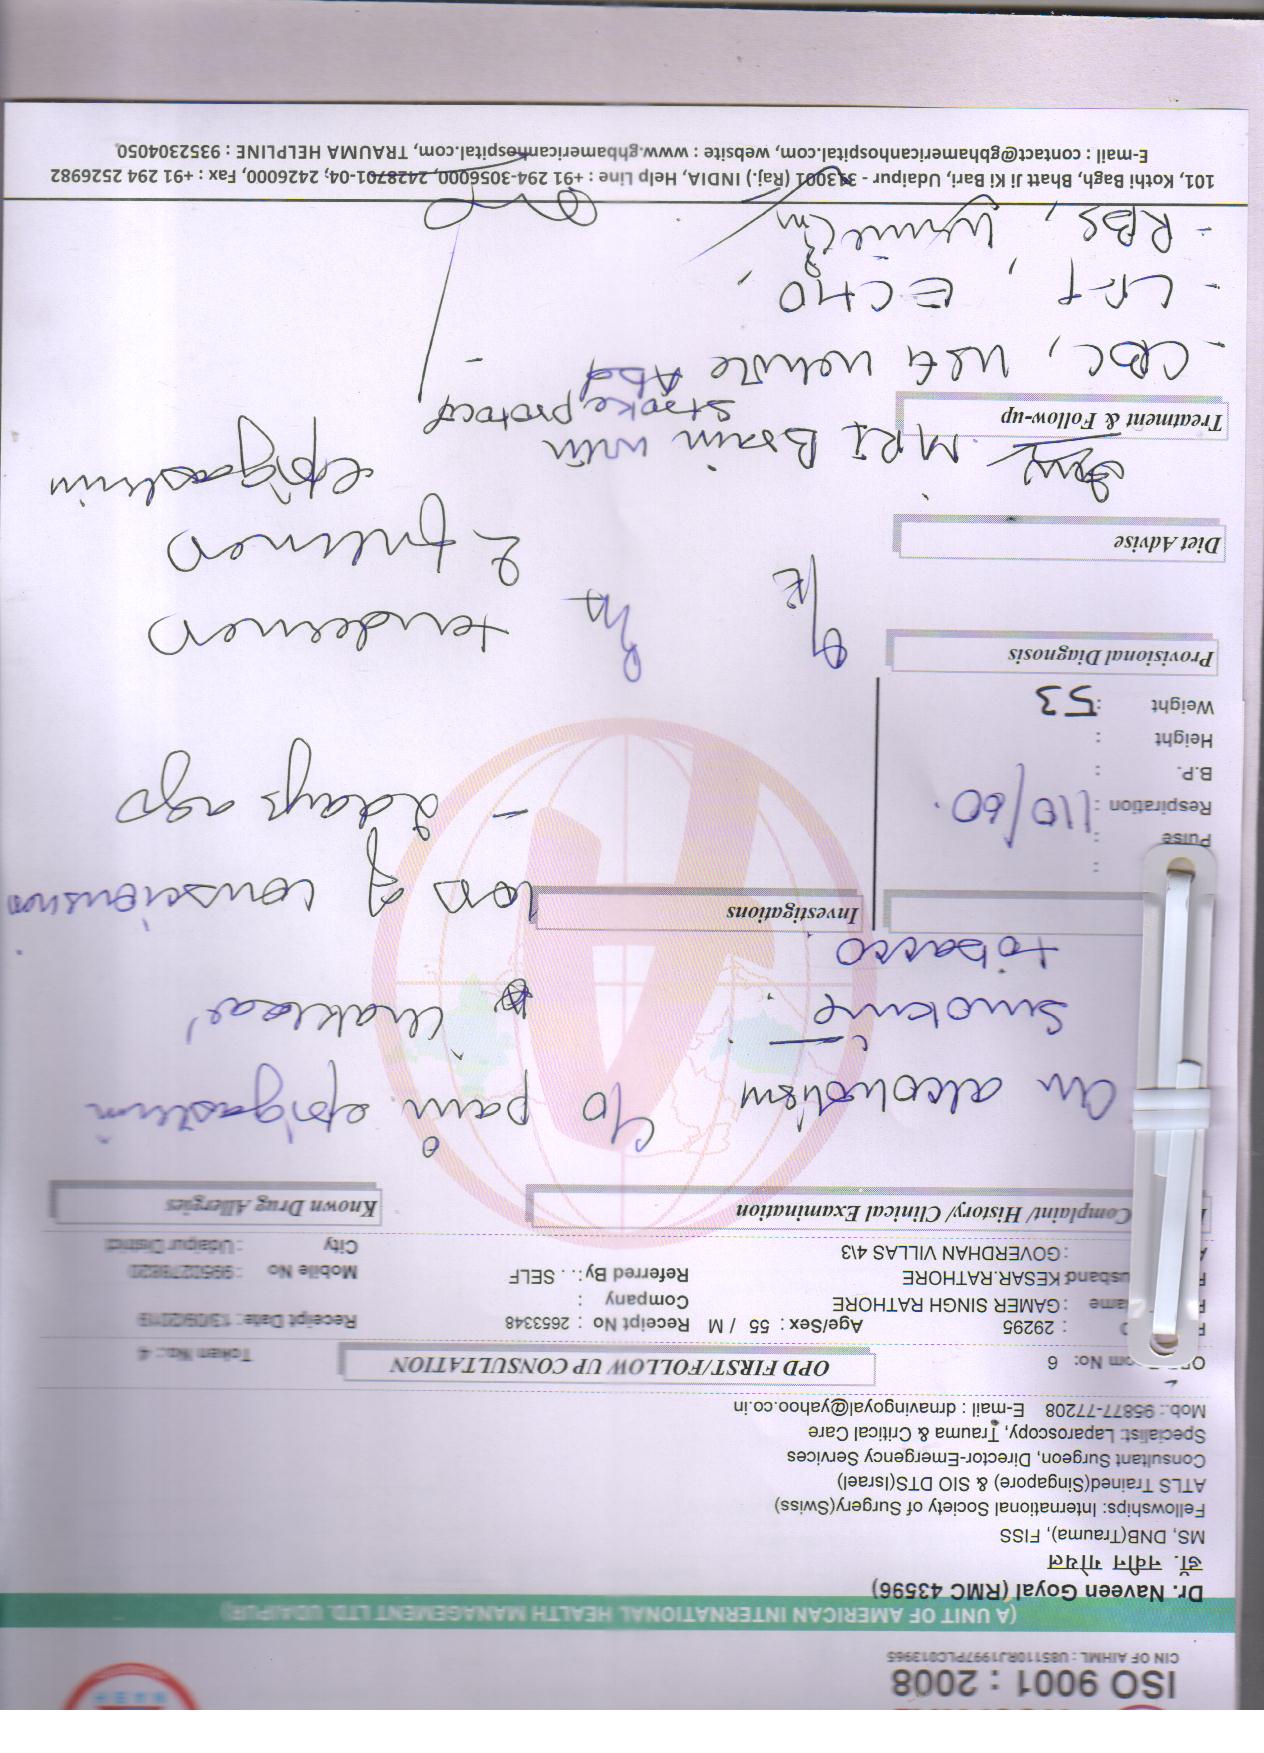 ISO 9001 : 2008
CIN OF AIHML : U85110RJ1997PLC013965
(A UNIT OF AMERICAN INTERNATIONAL HEALTH MANAGEMENT LTD. UDAIPUR)
Dr. Naveen Goyal (RMC 43596)
डॉ. नवीन गोयल
MS, DNB(Trauma), FISS
Fellowships: International Society of Surgery(Swiss)
ATLS Trained(Singapore) & SIO DTS(Israel)
Consultant Surgeon, Director-Emergency Services
Specialist: Laparoscopy, Trauma & Critical Care
Mob.: 95877-77208 E-mail : drnavingoyal@yahoo.co.in
No: 6 OPD FIRST/FOLLOW UP CONSULTATION Token No.: 4
: 29295 Age/Sex : 55 / M Receipt No : 2653348 Receipt Date : 13/09/2019
: GAMER SINGH RATHORE Company :
: KESAR.RATHORE Referred By : . . SELF Mobile No
: GOVERDHAN VILLAS 4\3 City : Udaipur District
Complaint/ History/ Clinical Examination Known Drug Allergies
alcoholism c/o pain epigastrium
smoking
tobacco
Investigations
loss of consciousness
- 2 days ago
Pulse :
Respiration : 110/60
B.P. :
Height :
Weight : 53
Provisional Diagnosis
O/E P/A tenderness
epigastrium
Diet Advise
MRI Brain with
stroke protocol
Treatment & Follow-up
- CBC, USG whole Abd
- LFT, ECHO,
- RBS,
101, Kothi Bagh, Bhatt Ji Ki Bari, Udaipur - 313001 (Raj.) INDIA, Help Line : +91 294-3056000, 2428701-04; 2426000, Fax : +91 294 2526982
E-mail : contact@gbhamericanhospital.com, website : www.gbhamericanhospital.com, TRAUMA HELPLINE : 9352304050